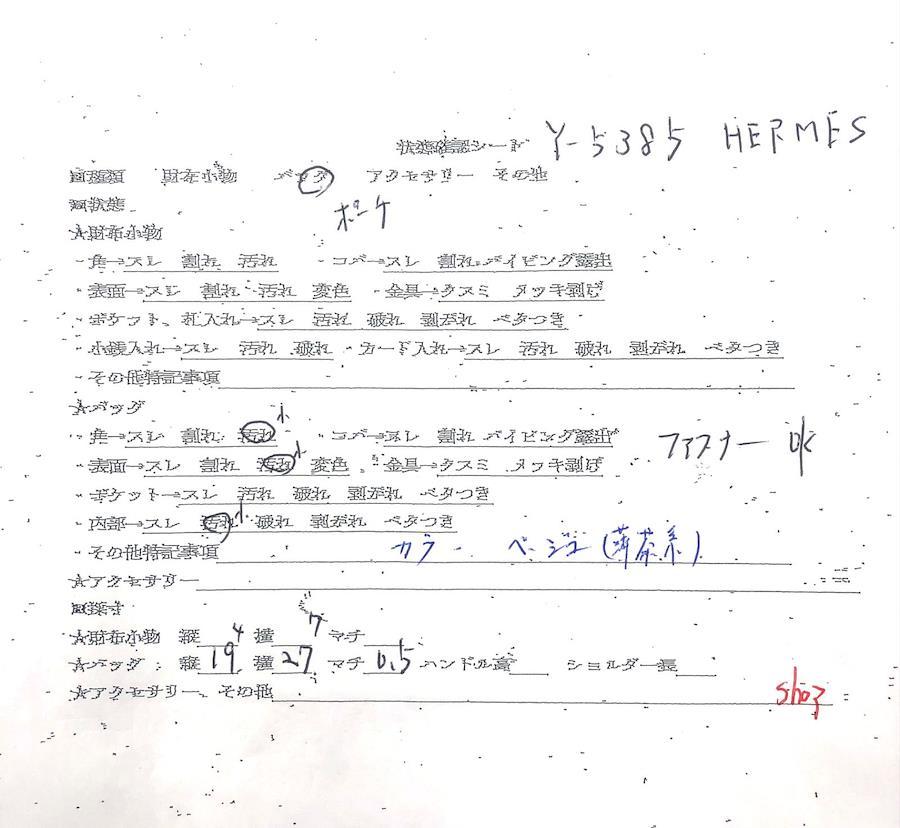 状態確認シート Y-5385 HERMES
■種類 財布小物 バッグ アクセサリー その他
■状態 ポーチ
★財布小物
・角→スレ 割れ 汚れ ・コバ→スレ 割れ パイピング露出
・表面→スレ 割れ 汚れ 変色 ・金具→クスミ メッキ剥げ
・ポケット、札入れ→スレ 汚れ 破れ 剥がれ ベタつき
・小銭入れ→スレ 汚れ 破れ ・カード入れ→スレ 汚れ 破れ 剥がれ ベタつき
・その他特記事項
★バッグ
・角→スレ 割れ 汚れ 小 ・コバ→スレ 割れ パイピング露出 ファスナー OK
・表面→スレ 割れ 汚れ 小 変色 ・金具→クスミ メッキ剥げ
・ポケット→スレ 汚れ 破れ 剥がれ ベタつき
・内部→スレ 汚れ 小 破れ 剥がれ ベタつき
・その他特記事項 カラー ベージュ(薄茶系)
★アクセサリー
■採寸
★財布小物 縦 4 横 7 マチ
★バッグ : 縦 19 横 27 マチ 0.5 ハンドル高 ショルダー長
★アクセサリー、その他